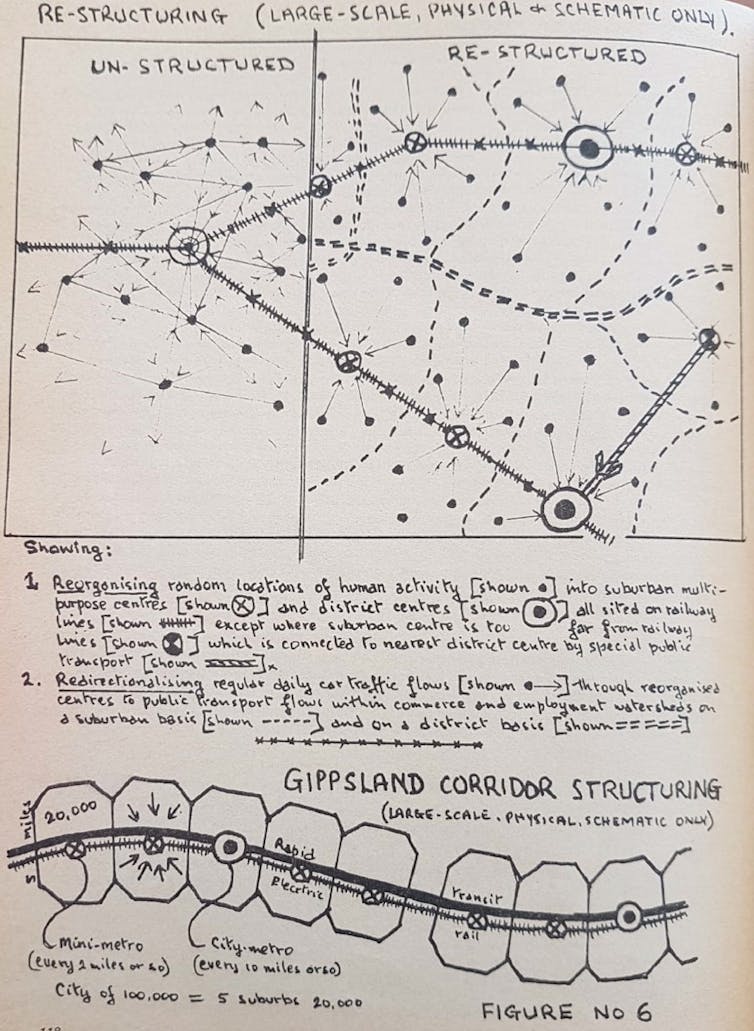 RE-STRUCTURING (LARGE-SCALE, PHYSICAL & SCHEMATIC ONLY).
UN-STRUCTURED
RE-STRUCTURED
Showing:
1. Reorganising random locations of human activity [shown •] into suburban multi-
purpose centres [shown ⊗] and district centres [shown ⦿] all sited on railway
lines [shown ┼┼┼┼┼] except where suburban centre is too far from railway
lines [shown ⊗] which is connected to nearest district centre by special public
transport [shown ═══].
2. Redirectionalising regular daily car traffic flows [shown •→] through reorganised
centres to public transport flows within commerce and employment watersheds on
a suburban basis [shown -----] and on a district basis [shown =====]
GIPPSLAND CORRIDOR STRUCTURING
(LARGE-SCALE, PHYSICAL, SCHEMATIC ONLY)
5 miles
20,000
Rapid
Electric
transit
rail
Mini-metro
(every 2 miles or so)
City-metro
(every 10 miles or so)
City of 100,000 = 5 suburbs 20,000
FIGURE NO 6